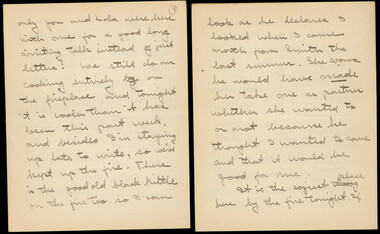 only you and Lola were here
with me for a good long
writing talk instead of just
letters! We still do our
cooking entirely on
the fireplace and tonight
it is cooler than it has
been this past week,
and besides I'm staying
up late to write, so we've
kept up the fire. There
is the good old black kettle
on the fire too so I can
look as he declares I
looked when I came
north from Smith the
last summer. She
he would have made
her take me as partner
whether she wanted to
or not because he
thought I wanted to come
and that it would be
good for me.
It is the cosiest place
here by the fire tonight. If